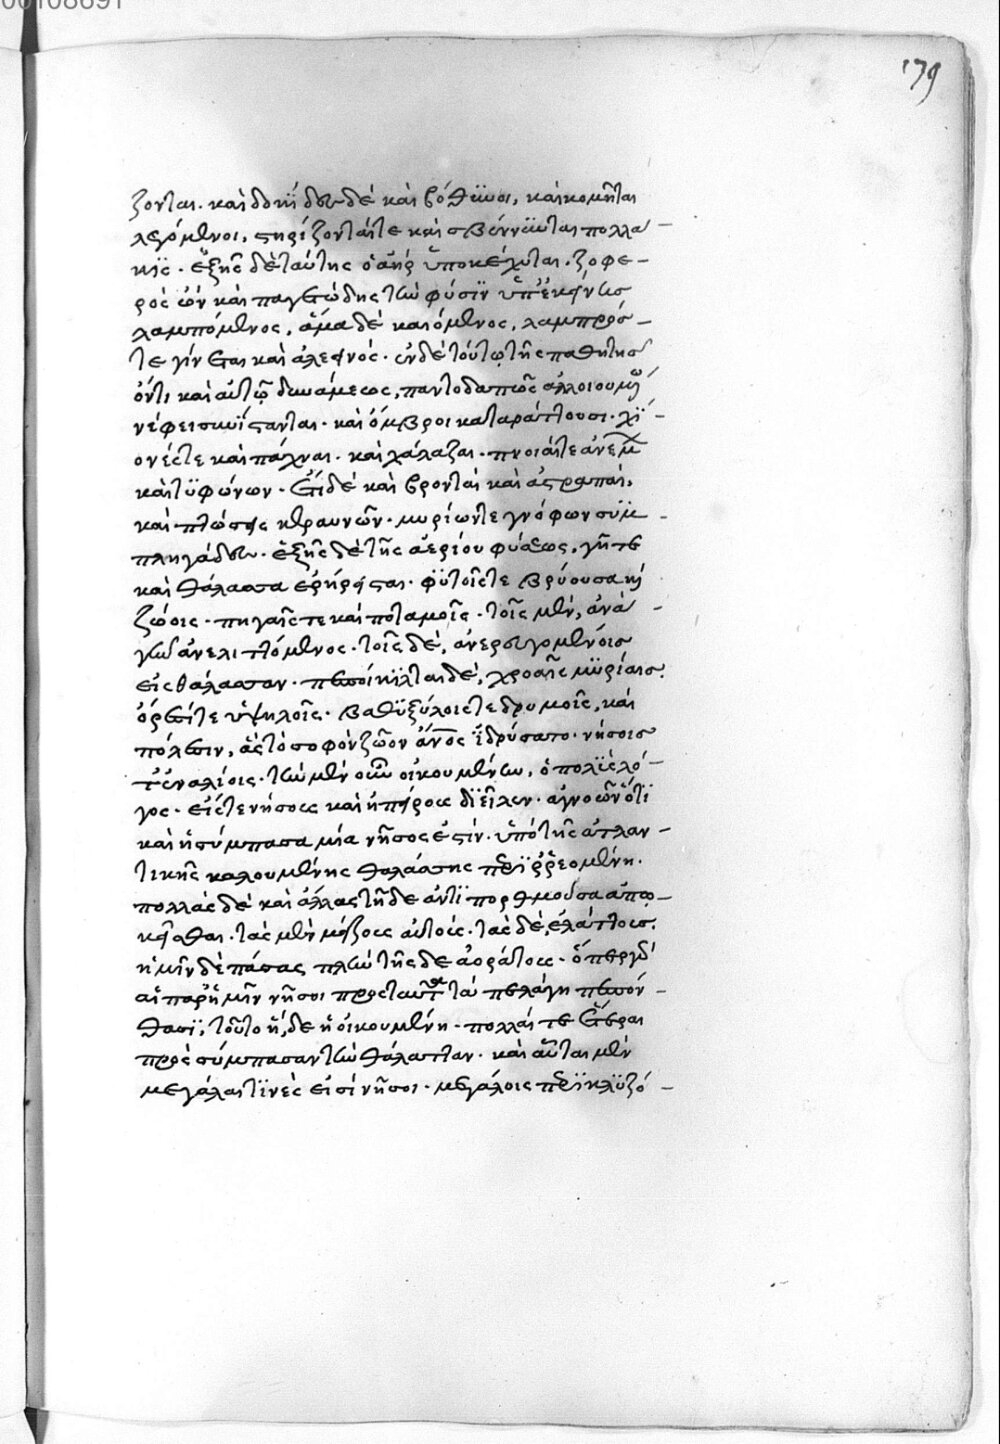 179
ζονται. καὶ δοκίδων δὲ καὶ βόθυνοι, καὶ κομῆται
λεγόμενοι, στηρίζονταί τε καὶ σβέννυνται πολλα-
κις. ἑξῆς δὲ ταύτης ὁ ἀὴρ ὑποκέχυται. ζοφε-
ρὸς ὢν καὶ παγετώδης τὴν φύσιν ὑπ' ἐκείνης
λαμπόμενος, ἅμα δὲ καιόμενος, λαμπρός-
τε γίνεται καὶ ἀλεεινός. ἐν δὲ τούτῳ τῆς παθητῆς
ὄντι καὶ αὐτῷ δυνάμεως, παντοδαπῶς ἀλλοιουμένῳ
νέφει συνίστανται. καὶ ὄμβροι καταράττουσι. χι-
όνες τε καὶ πάχναι. καὶ χάλαζαι. πνοιαί τε ἀνέμων
καὶ τυφώνων. ἔτι δὲ καὶ βρονταὶ καὶ ἀστραπαί,
καὶ πτώσεις κεραυνῶν. μυρίων τε γνόφων συμ-
πληγάδων. ἑξῆς δὲ τῆς ἀερίου φύσεως, γῆ τε
καὶ θάλασσα ἐρήρεισται. φυτοῖς τε βρύουσα καὶ
ζώοις. πηγαῖς τε καὶ ποταμοῖς. τοῖς μὲν, ἀνὰ-
γῆν ἀνελιττόμενος. τοῖς δὲ, ἀνερευγομένοις
εἰς θάλασσαν. πεποίκιλται δὲ, χροαῖς μυρίαις.
ὄρεσί τε ὑψηλοῖς. βαθυξύλοις τε δρυμοῖς, καὶ
πόλεσιν, ἃς τὸ σοφὸν ζῶον ἄνος ἱδρύσατο. νήσοις
τ' ἐναλίοις. τὴν μὲν οὖν οἰκουμένην, ὁ πολὺς λό-
γος. εἴς τε νήσους καὶ ἠπείρους διεῖλεν. ἀγνοῶν ὅτι
καὶ ἡ σύμπασα μία νῆσος ἐστίν. ὑπὸ τῆς ἀτλαν-
τικῆς καλουμένης θαλάσσης περιρρεομένη.
πολλὰς δὲ καὶ ἄλλας τῆδε ἀντιπόρθμους ἄπο-
κεῖσθαι. τὰς μὲν μείζους αὐτοῖς. τὰς δὲ, ἐλάττους.
ἡμῖν δὲ πάσας πλὴν τῆς δε ἀοράτους. ὅπερ γὰρ
αἱ παρ' ἡμῖν νῆσοι πρὸς ταῦτα τὰ πελάγη πεπόν-
θασι, τοῦτο ἥδε ἡ οἰκουμένη. πολλαί τε ἕτεραι
πρὸς σύμπασαν τὴν θάλατταν. καὶ αὗται μὲν
μεγάλαι τινές εἰσι νῆσοι. μεγάλοις περικλυζό-